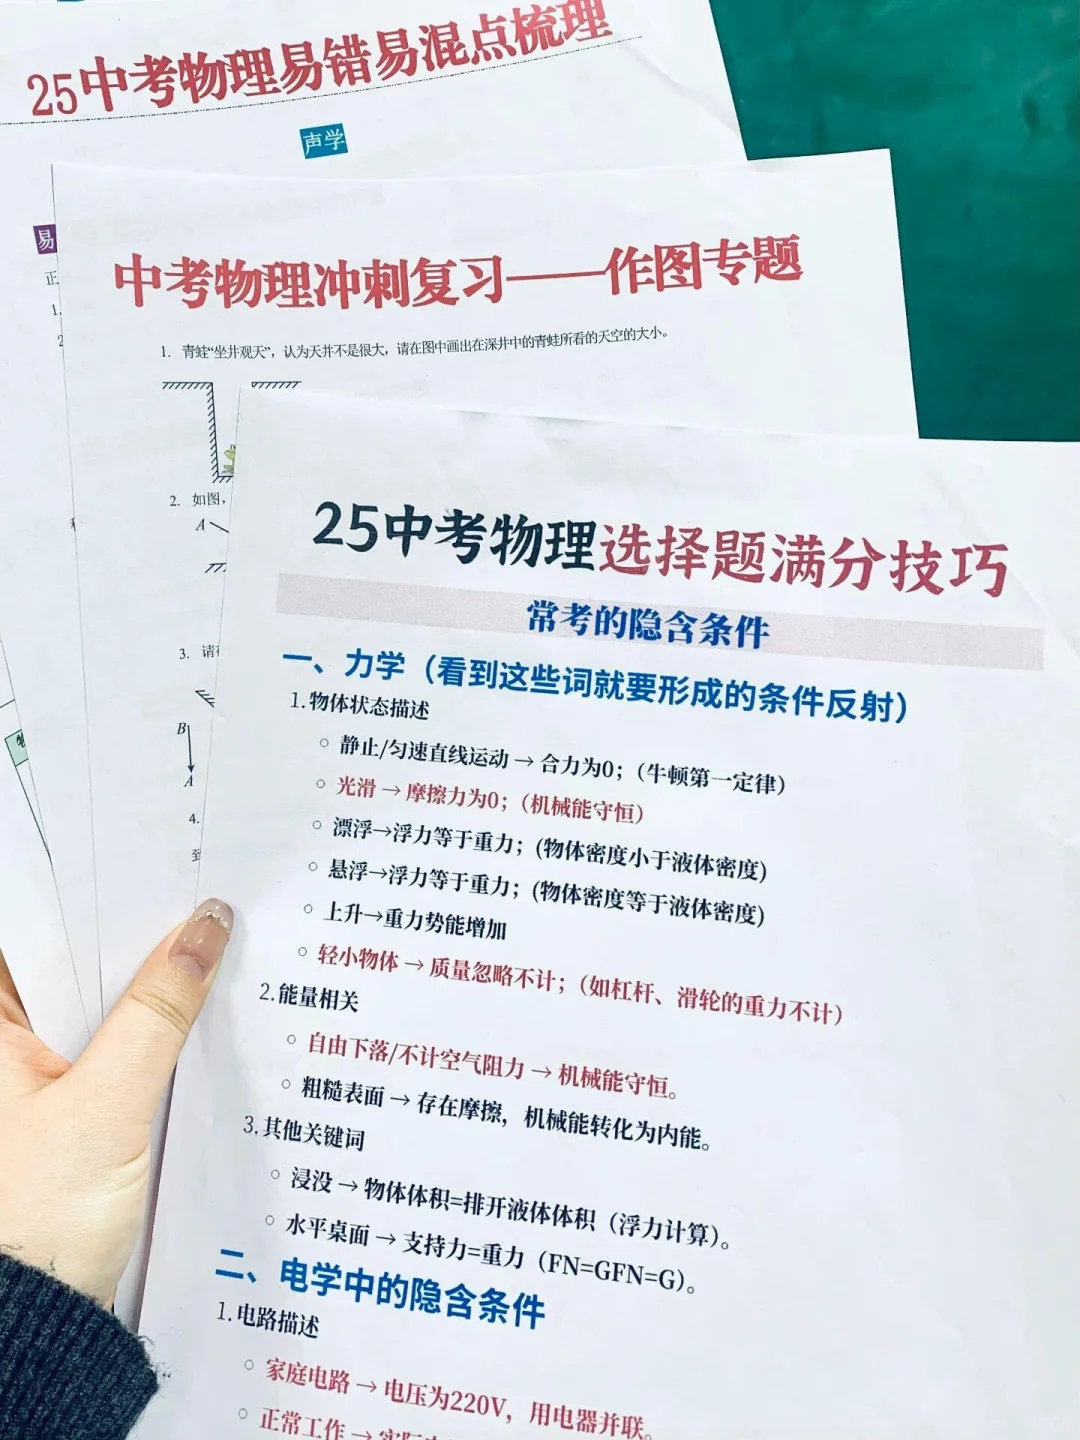 25中考物理易错易混点梳理
声学
易
正
1.
2
中考物理冲刺复习——作图专题
1. 青蛙“坐井观天”，认为天并不是很大，请在图中画出在深井中的青蛙所看的天空的大小。
2. 如图，
A
3. 请在
B
A
4.
到
25中考物理选择题满分技巧
常考的隐含条件
一、力学（看到这些词就要形成的条件反射）
1.物体状态描述
○ 静止/匀速直线运动 → 合力为0；（牛顿第一定律）
○ 光滑 → 摩擦力为0；（机械能守恒）
○ 漂浮→浮力等于重力；(物体密度小于液体密度）
○ 悬浮→浮力等于重力；(物体密度等于液体密度）
○ 上升→重力势能增加
○ 轻小物体 → 质量忽略不计；（如杠杆、滑轮的重力不计）
2.能量相关
○ 自由下落/不计空气阻力 → 机械能守恒。
○ 粗糙表面 → 存在摩擦，机械能转化为内能。
3.其他关键词
○ 浸没 → 物体体积=排开液体体积（浮力计算）。
○ 水平桌面 → 支持力=重力（FN=GFN=G）。
二、电学中的隐含条件
1.电路描述
○ 家庭电路 → 电压为220V，用电器并联。
○ 正常工作 → 实际